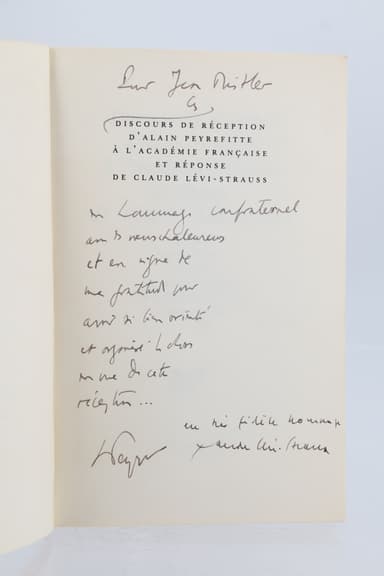 Pour Jean Mistler
ces
DISCOURS DE RÉCEPTION
D'ALAIN PEYREFITTE
À L'ACADÉMIE FRANÇAISE
ET RÉPONSE
DE CLAUDE LÉVI-STRAUSS
en hommage confraternel
et en signe de
ma gratitude pour
avoir si bien orienté
et organisé le choix
en vue de cette
réception...
en très fidèle hommage
Claude Lévi-Strauss